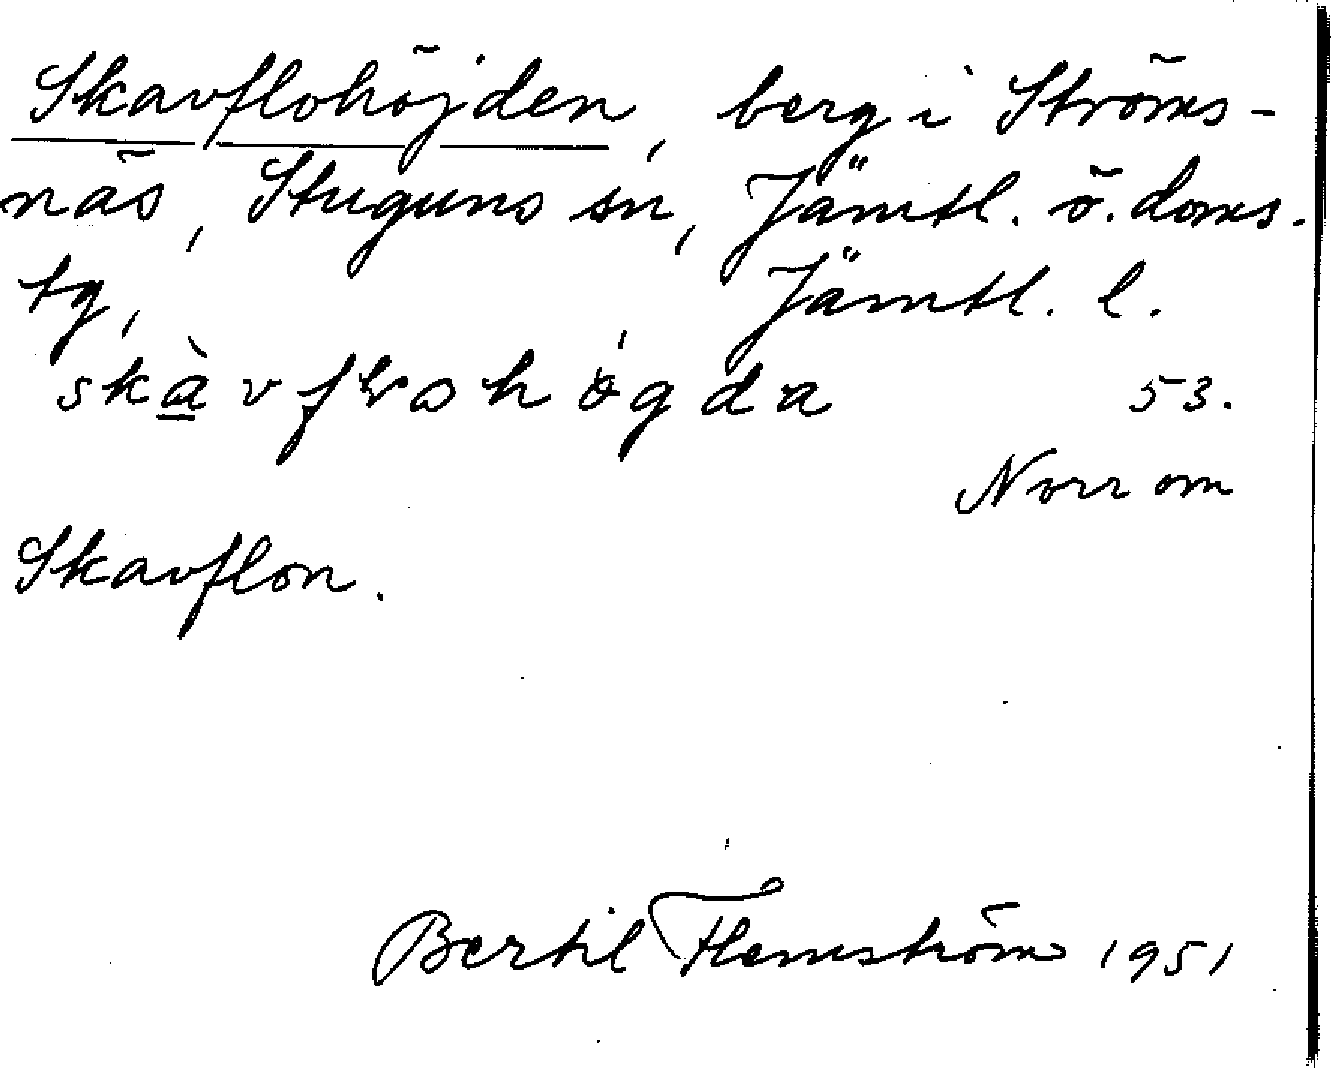 Skavflohöjden, berg i Ströms-
näs, Stuguns sn, Jämtl. ö. doms.
tg, Jämtl. l.
53.
Norr om
Skavflon.
Bertil Flemström 1951